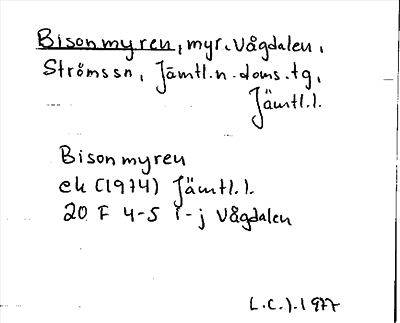 Bisonmyren, myr. Vågdalen,
Ströms sn, Jämtl. n. doms. tg,
Jämtl. l.
Bisonmyren
ek (1974) Jämtl. l.
20 F 4-5 i-j Vågdalen
L.C.J. 1977